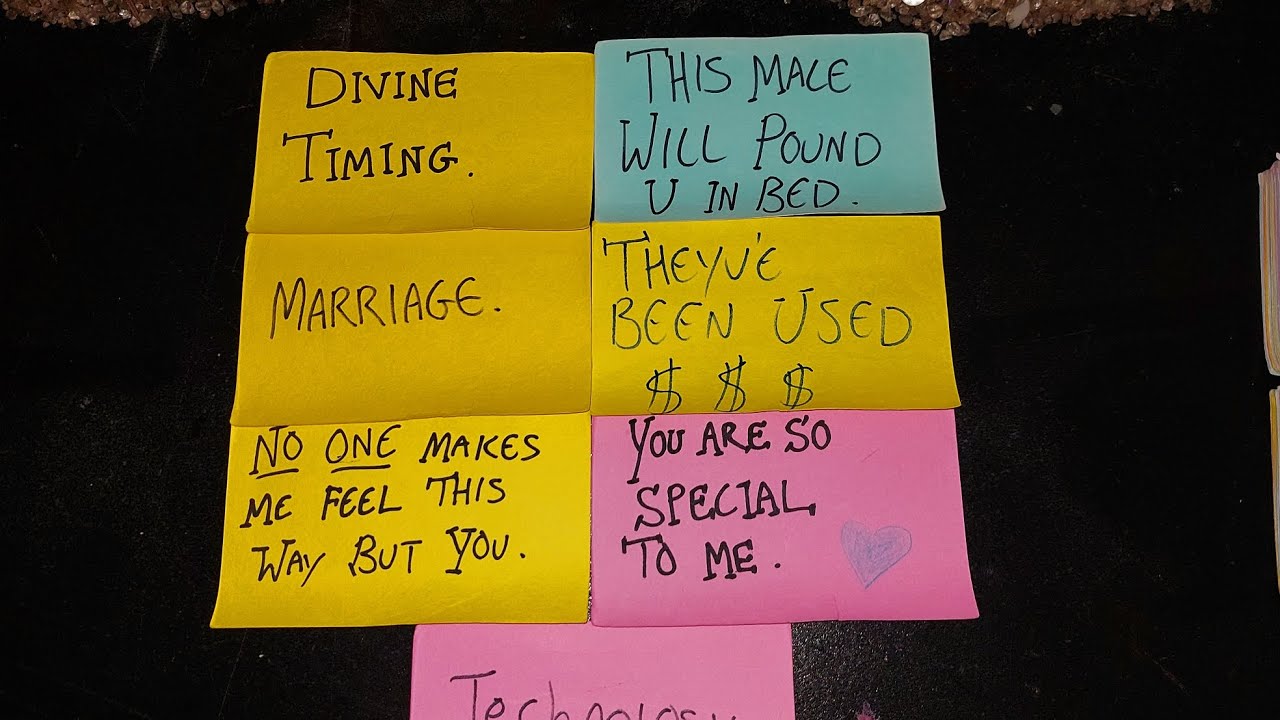 DIVINE
TIMING.
THIS MALE
WILL POUND
U IN BED.
MARRIAGE.
THEYV'E
BEEN USED
$ $ $
NO ONE MAKES
ME FEEL THIS
WAY BUT YOU.
YOU ARE SO
SPECIAL
TO ME.
Technology